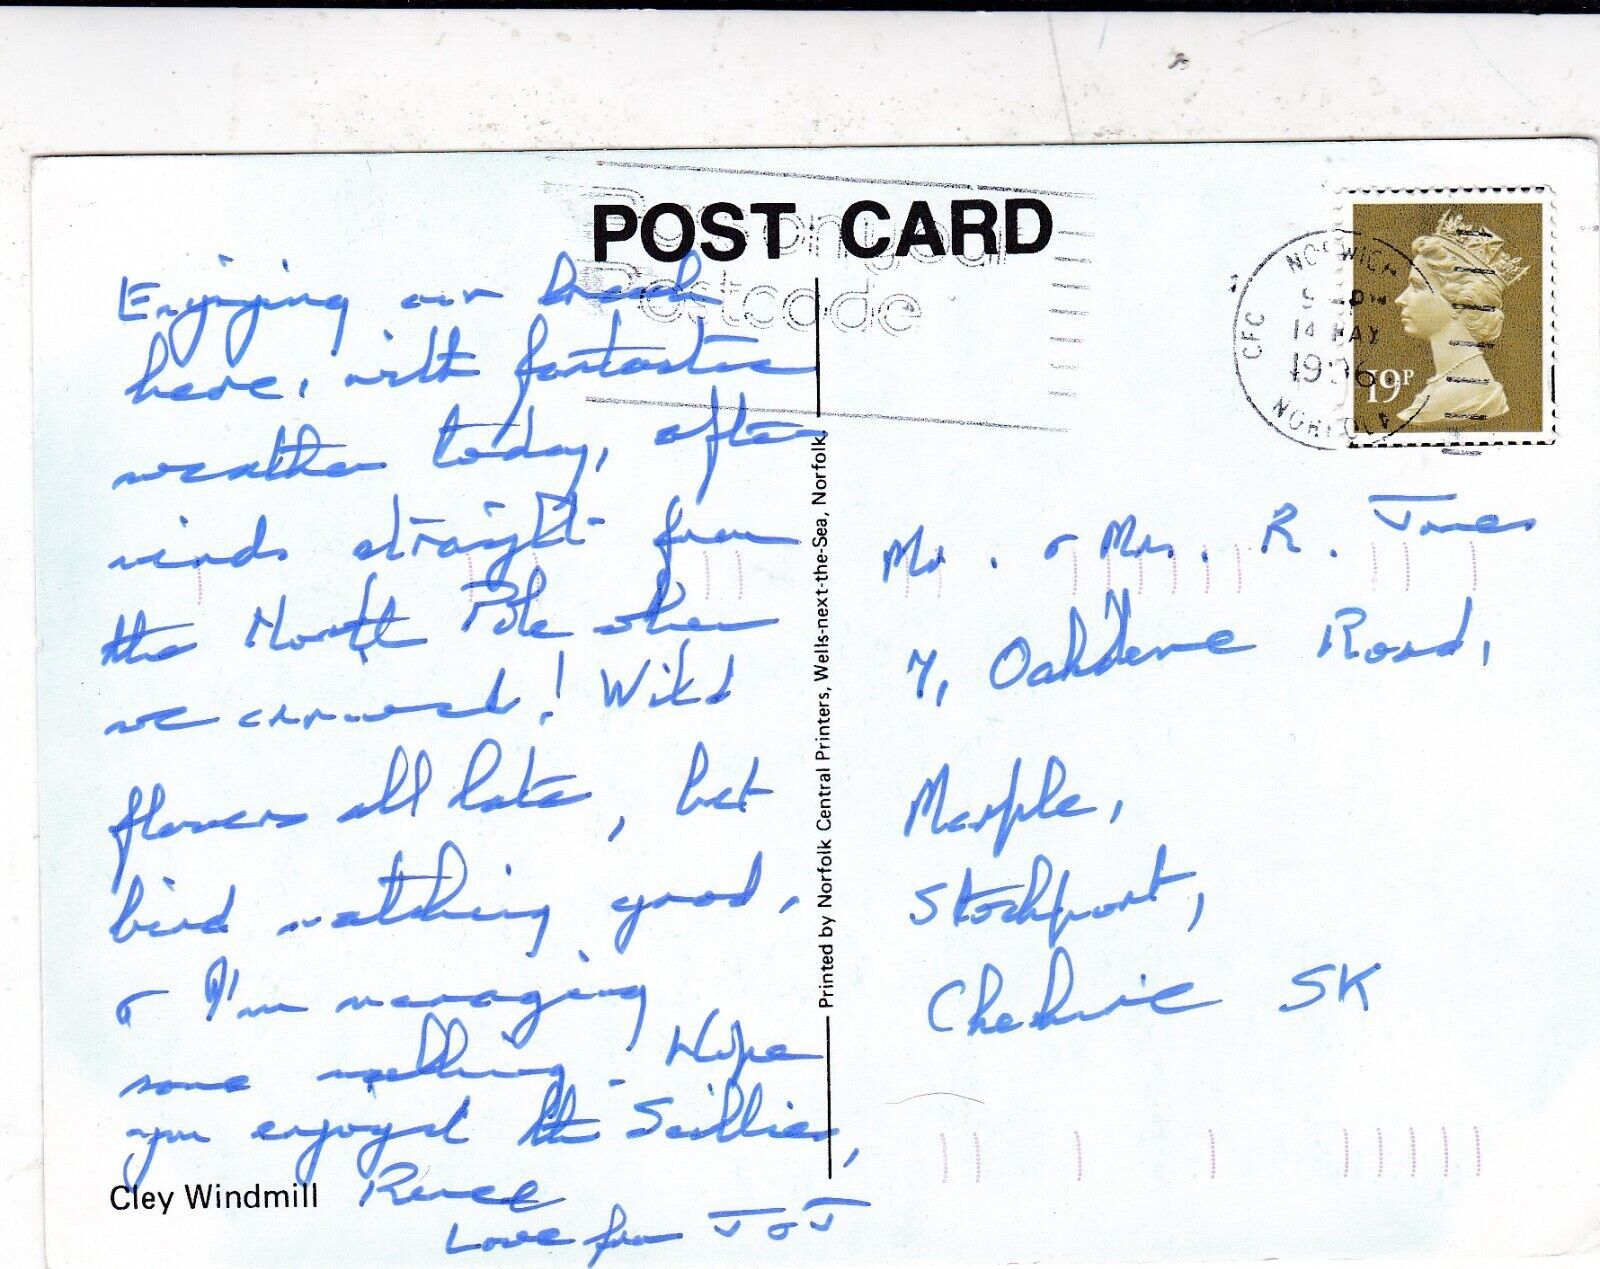 POST CARD
Pass on your
Postcode
Enjoying our break
here, with fantastic
weather today, after
winds straight from
the North Pole when
we arrived! Wild
flowers all late, but
bird watching good,
& I'm managing
some walking. Hope
you enjoyed the Scillies,
Love from J & J
Cley Windmill
Printed by Norfolk Central Printers, Wells-next-the-Sea, Norfolk.
NORWICH
14 MAY
CFC
NORFOLK
19P
Mr. & Mrs. R. Jones
7, Oakdene Road,
Marple,
Stockport,
Cheshire SK